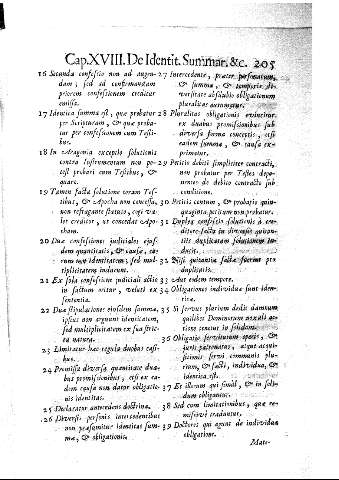 Cap.XVIII. De Identit. Summar. &c. 205
16 Secunda confessio non ad augen-
dam; sed ad confirmandam
priorem confessionem creditur
emissa.
17 Identica summa est, quæ probatur
per Scripturam, & quæ proba-
tur per confessionem cum Testi-
bus.
18 In Aragonia exceptio solutionis
contra Instrumentum non po-
test probari cum Testibus, &
quare.
19 Tamen facta solutione coram Tes-
tibus, & Apocha non concessa,
non refragante statuto, cogi va-
let creditor, ut concedat Apo-
cham.
20 Duæ confessiones judiciales ejus-
dem quantitatis, & causæ, ea-
rum non identitatem; sed mul-
tiplicitatem inducunt.
21 Ex sola confessione judiciali actio
in factum oritur, veluti ex
sententia.
22 Duæ stipulationes ejusdem summæ,
ipsius non arguunt identitatem;
sed multiplicitatem ex sua stric-
ta natura.
23 Limitatur hæc regula duobus casi-
bus.
24 Promissa diversa quantitate dua-
bus promissionibus, etsi ex ea-
dem causa non datur obligatio-
nis identitas.
25 Declaratur antecedens doctrina.
26 Diversis personis intercedentibus
non præsumitur identitas sum-
mæ, & obligationis.
27 Intercedente, præter personarum,
& summæ, & temporis di-
versitate absdubio obligationum
pluralitas
28 Pluralitas obligationis
ex duabus promissionibus sub
diversa forma conceptis, etsi
eadem summa, & causa ex-
primetur.
29 Petitis debiti simpliciter contracti,
non probatur per Testes depo-
nentes de debito contracto sub
conditione.
30 Petitis centum, & probatis quin-
quaginta petitum non probatur.
31 Duplex confessio solutionis à cre-
ditore facta in diversis quanti-
tatis duplicatam solutionem in-
ducit.
32 Nisi quitantia facta fuerint pro
duplicatis.
33 Aut eodem tempore.
34 Obligationes individuæ sunt iden-
titæ.
35 Si servus plurium dedit damnum
quilibet Dominorum noxali ac-
tione tenetur in solidum.
36 Obligatio servitutum operis, &
juris patronatus, atque acqui-
sitionis servi communis plu-
rium, & facti, individua, &
identica est.
37 Et illorum qui simul, & in soli-
dum obligantur.
38 Sed cum limitationibus, quæ re-
missivè traduntur.
39 Doctores qui agunt de individua
obligatione.
Mate-